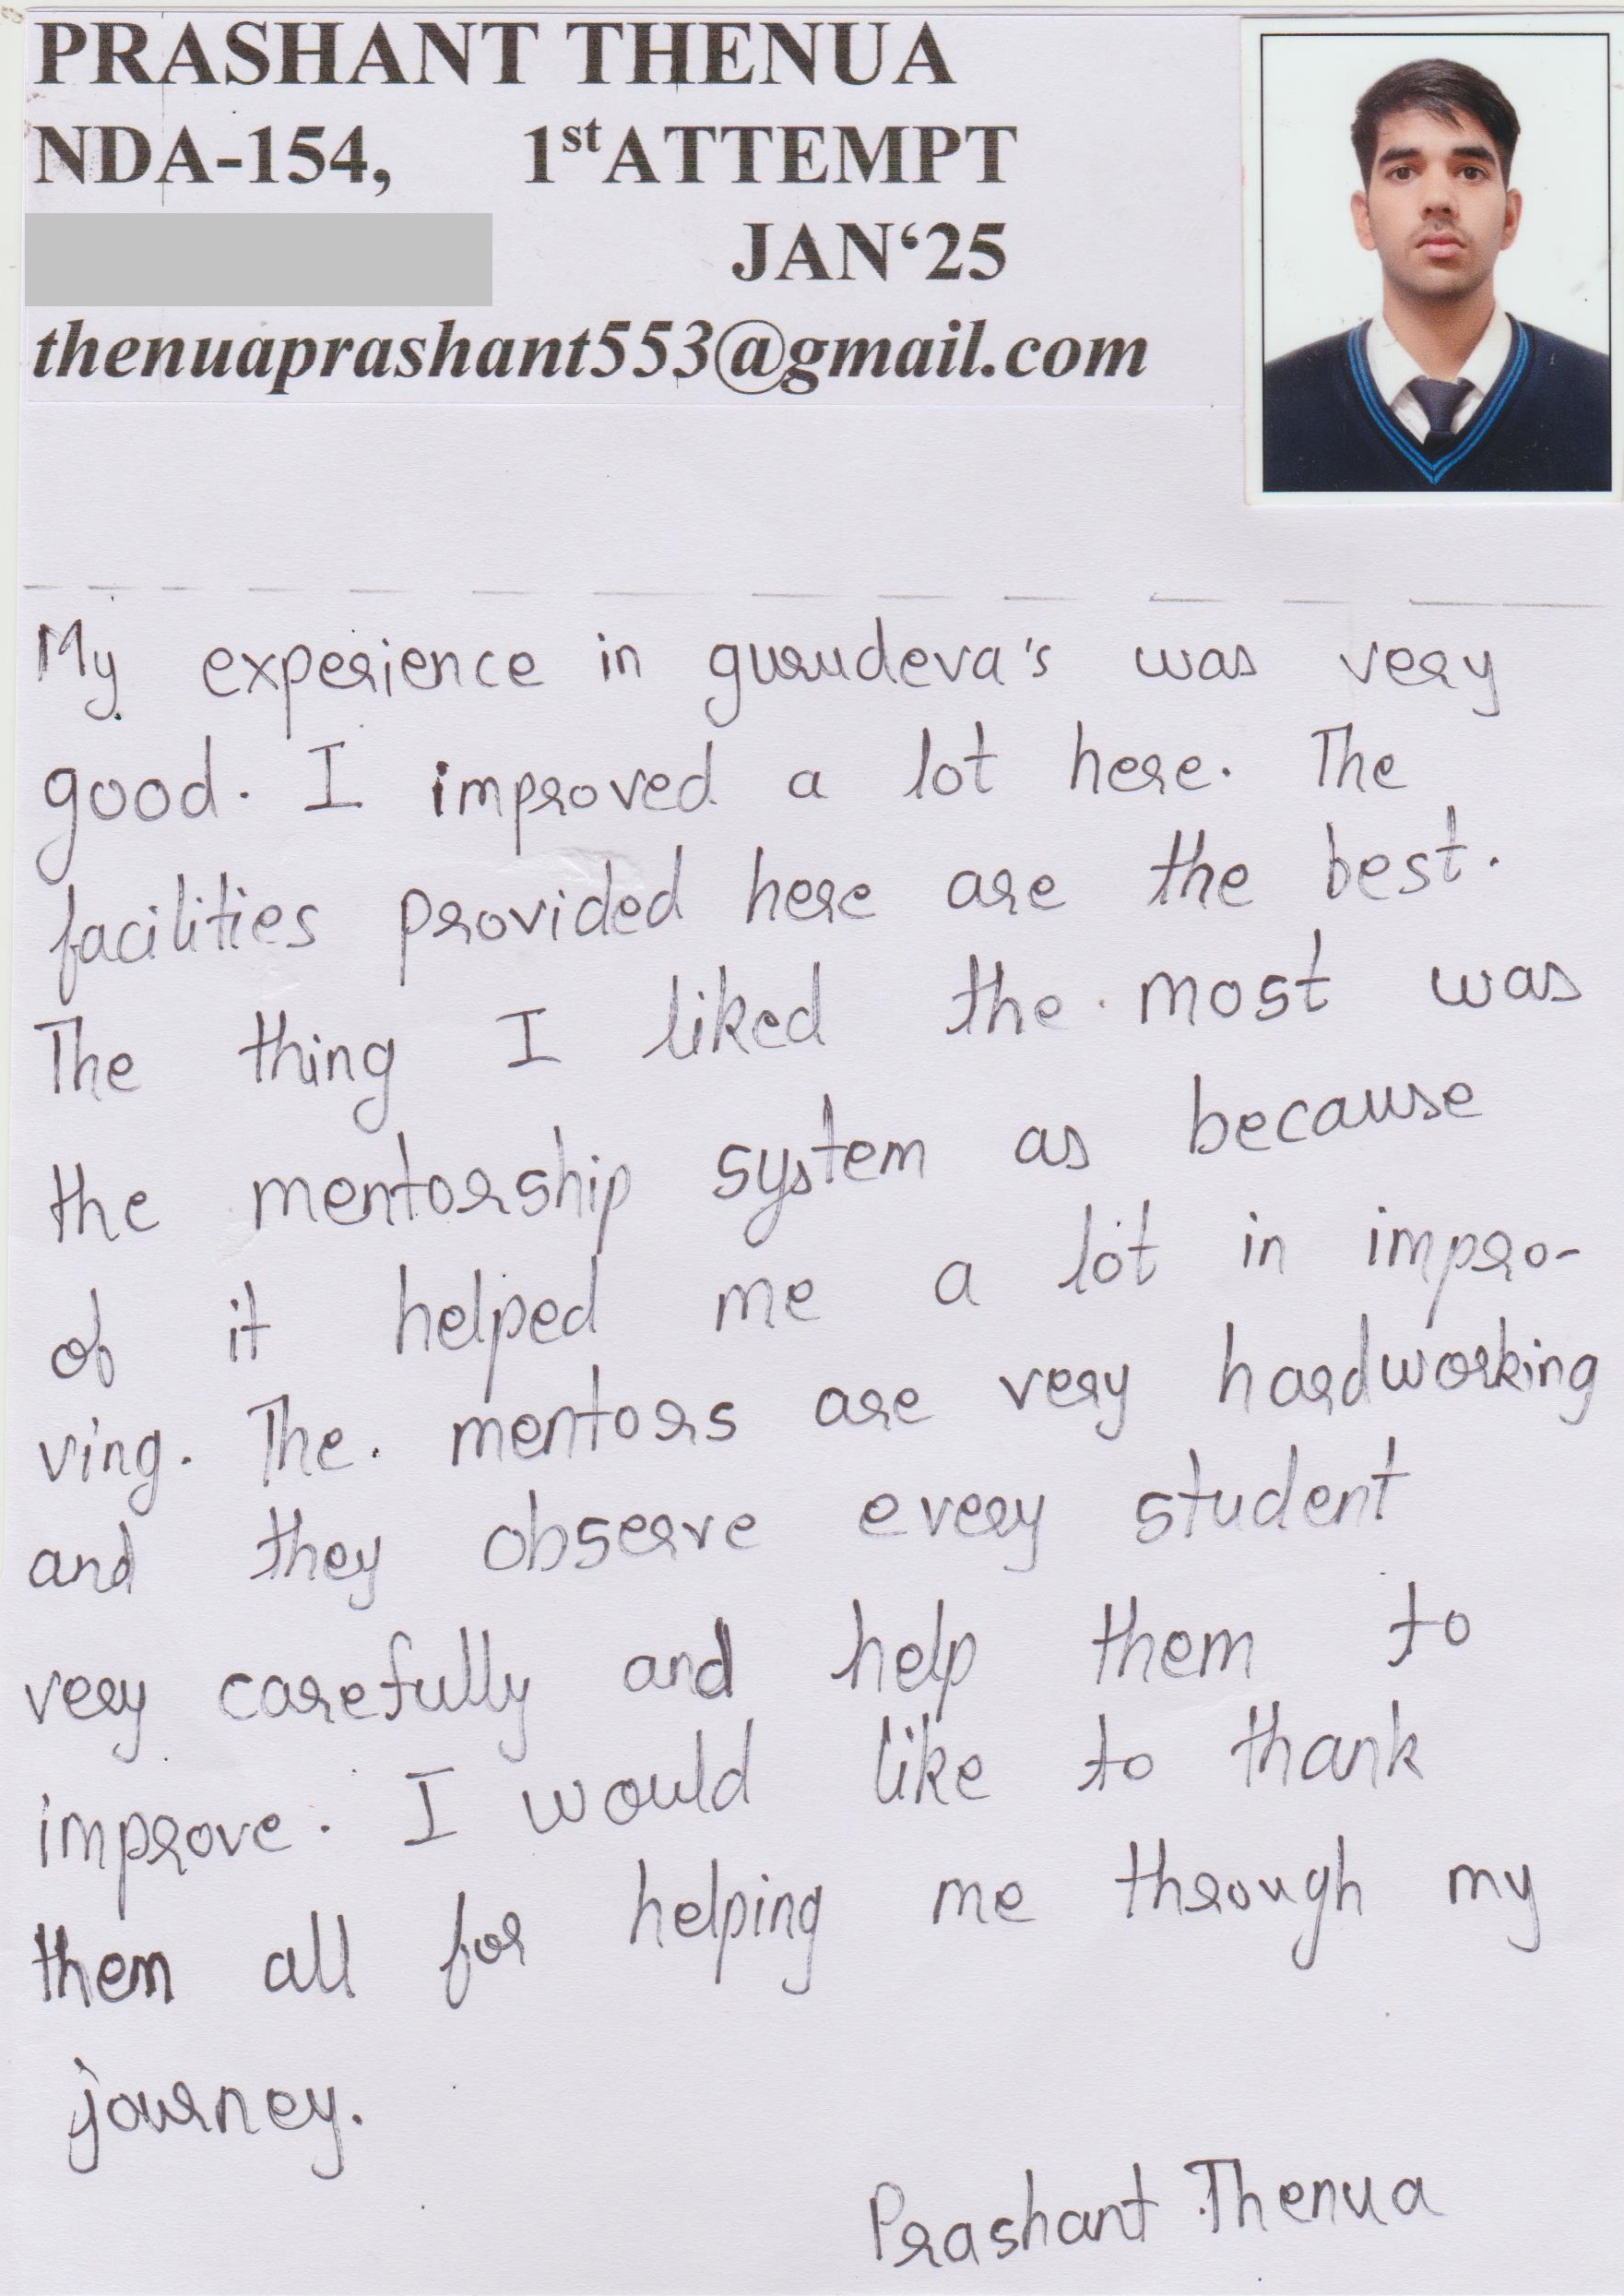 PRASHANT THENUA
NDA-154, 1st ATTEMPT
JAN‘25
thenuaprashant553@gmail.com
My experience in gurudeva's was very
good. I improved a lot here. The
facilities provided here are the best.
The thing I liked the most was
the mentorship system as because
of it helped me a lot in impro-
ving. The mentors are very hardworking
and they observe every student
very carefully and help them to
improve. I would like to thank
them all for helping me through my
journey.
Prashant Thenua